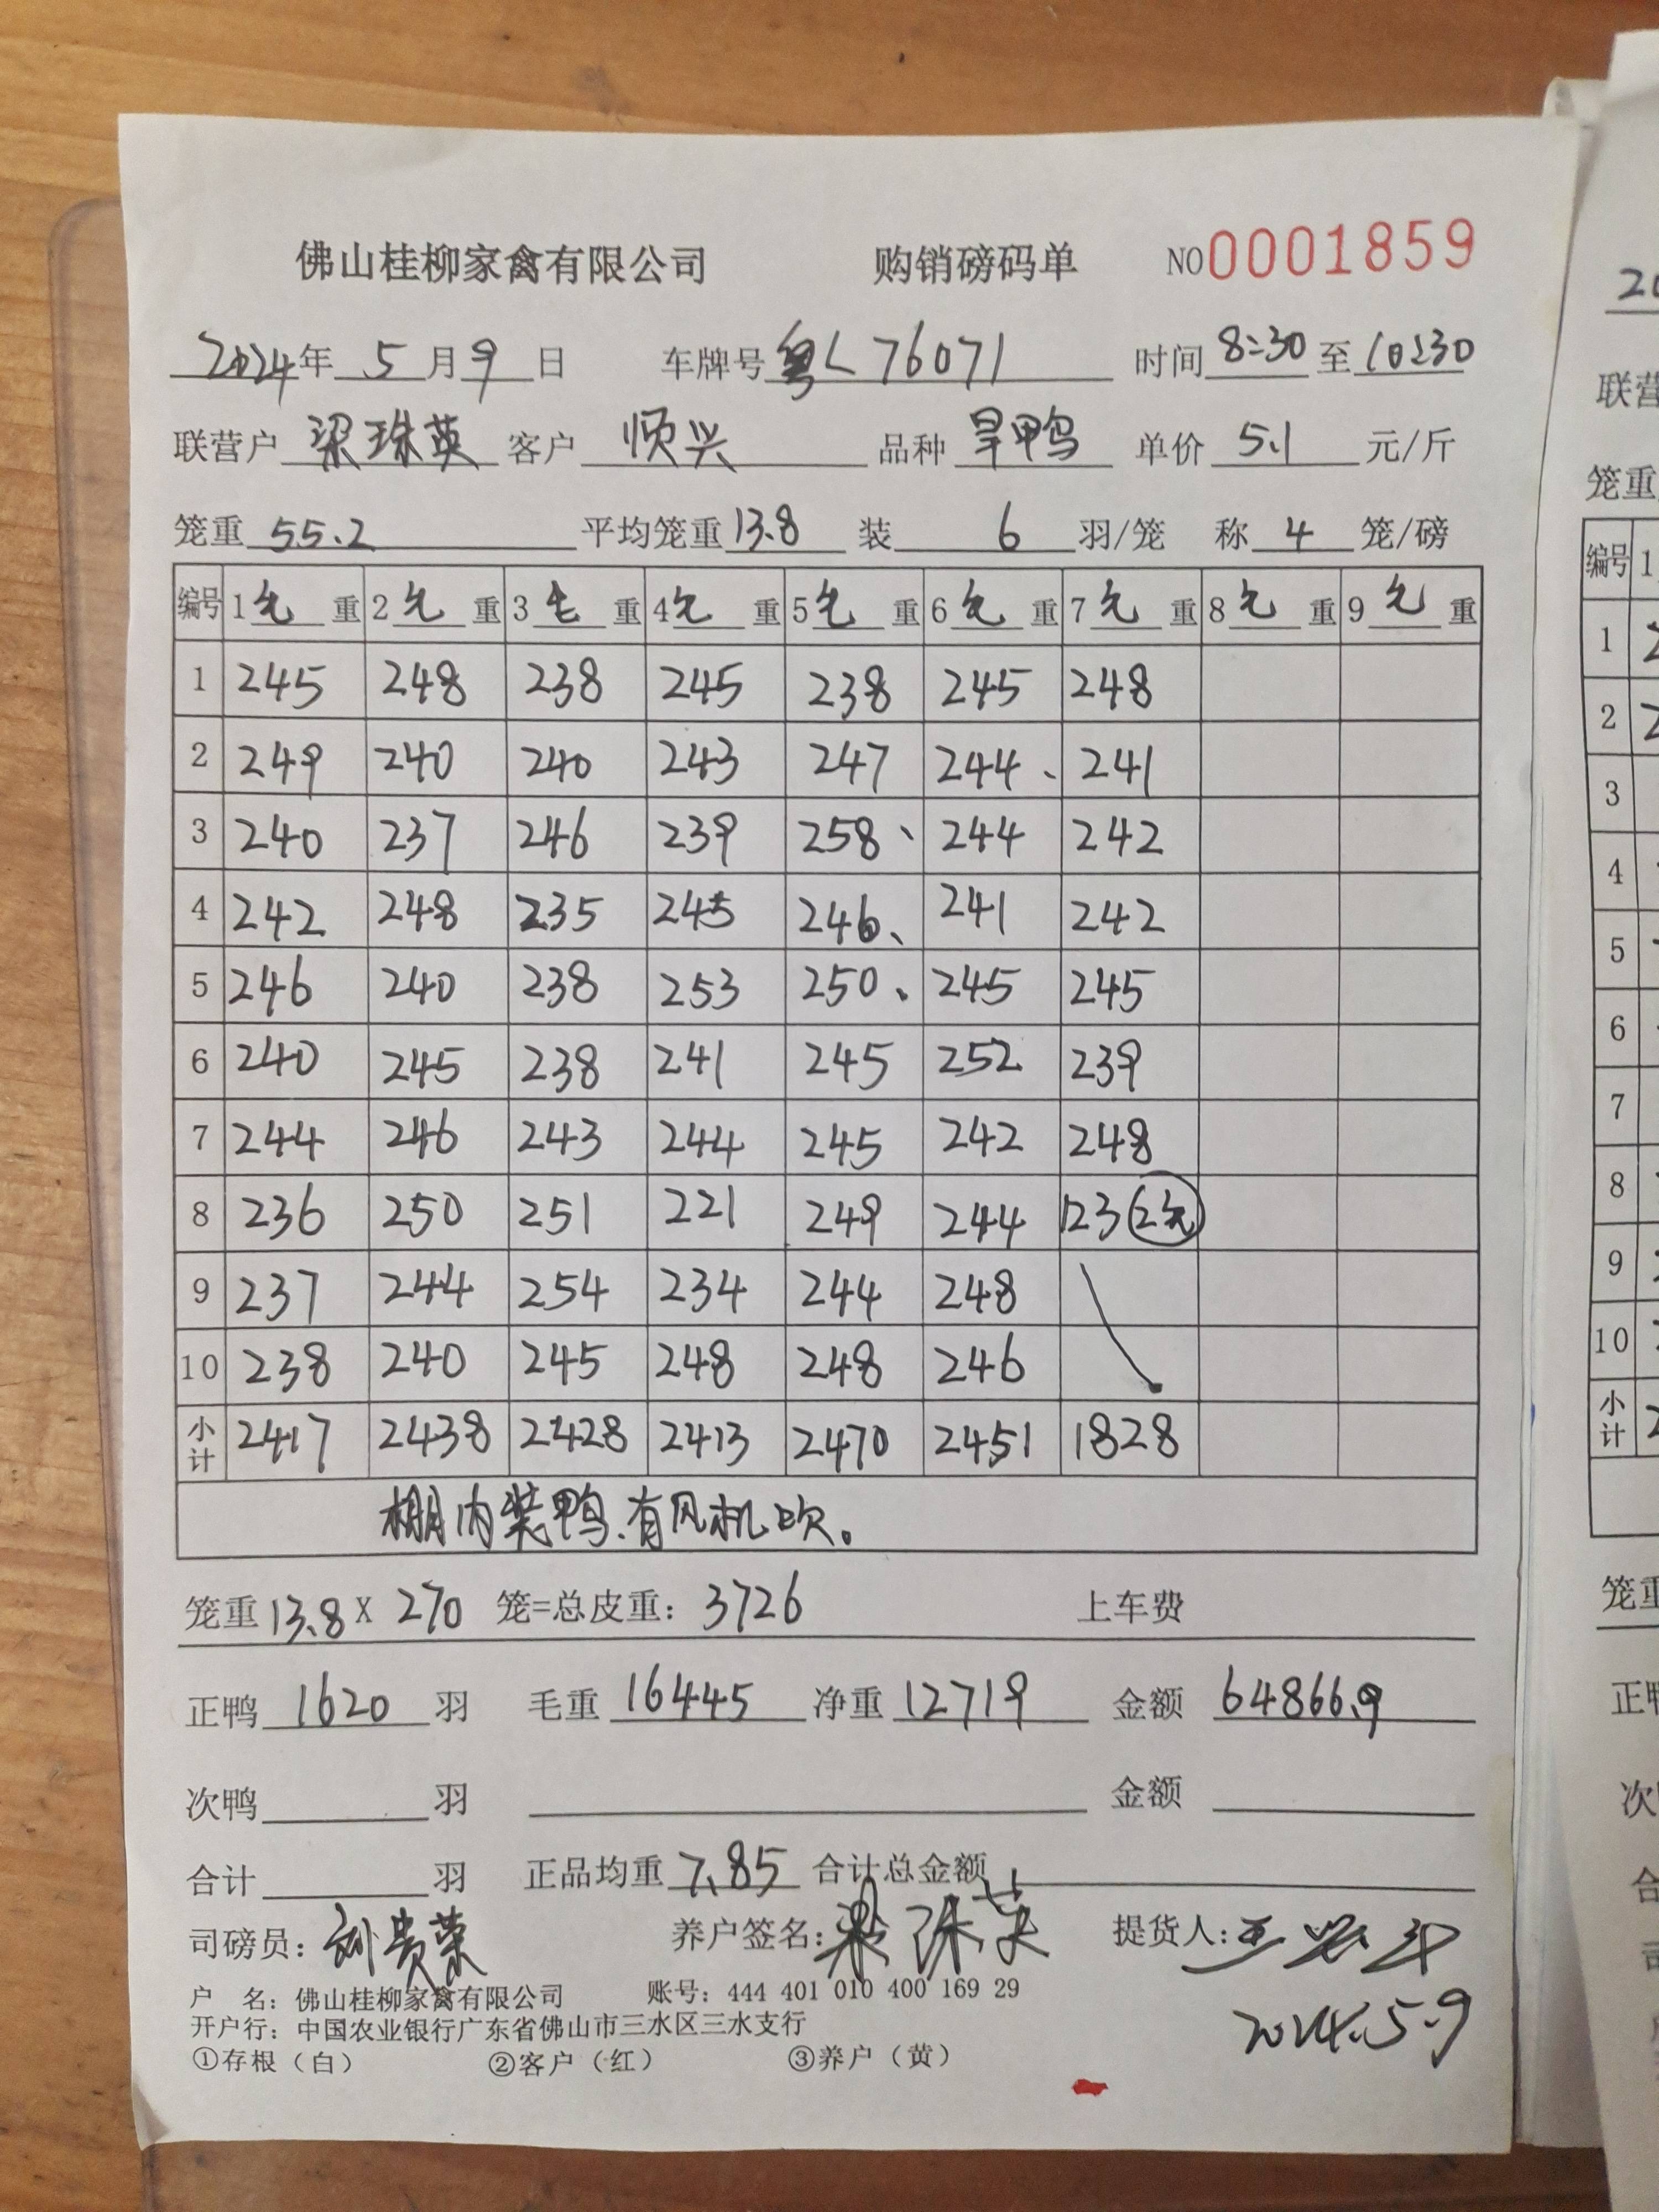 佛山桂柳家禽有限公司 购销磅码单 NO 0001859
2024年 5 月 9 日 车牌号 粤L 76071 时间 8:30 至 10:30
联营户 梁珠英 客户 顺兴 品种 旱鸭 单价 5.1 元/斤
笼重 55.2 平均笼重 13.8 装 6 羽/笼 称 4 笼/磅
编号 1毛重 2毛重 3毛重 4毛重 5毛重 6毛重 7毛重 8毛重 9毛重
1 245 248 238 245 238 245 248
2 249 240 240 243 247 244 、 241
3 240 237 246 239 258 、 244 242
4 242 248 235 245 246、 241 242
5 246 240 238 253 250 、 245 245
6 240 245 238 241 245 252 239
7 244 246 243 244 245 242 248
8 236 250 251 221 249 244 123 2笼
9 237 244 254 234 244 248
10 238 240 245 248 248 246
小计 2417 2438 2428 2413 2470 2451 1828
棚内装鸭、有风机吹。
笼重 13.8 X 270 笼=总皮重: 3726 上车费
正鸭 1620 羽 毛重 16445 净重 12719 金额 64866.9
次鸭 羽 金额
合计 羽 正品均重 7.85 合计总金额
司磅员: 刘贵荣 养户签名: 梁珠英 提货人:
户 名: 佛山桂柳家禽有限公司 账号: 444 401 010 400 169 29
开户行: 中国农业银行广东省佛山市三水区三水支行
2024.5.9
①存根（白） ②客户（红） ③养户（黄）
20
联营
笼重
编号 1
1
2
3
4
5
6
7
8
9
10
小计
笼重
正鸭
次
合